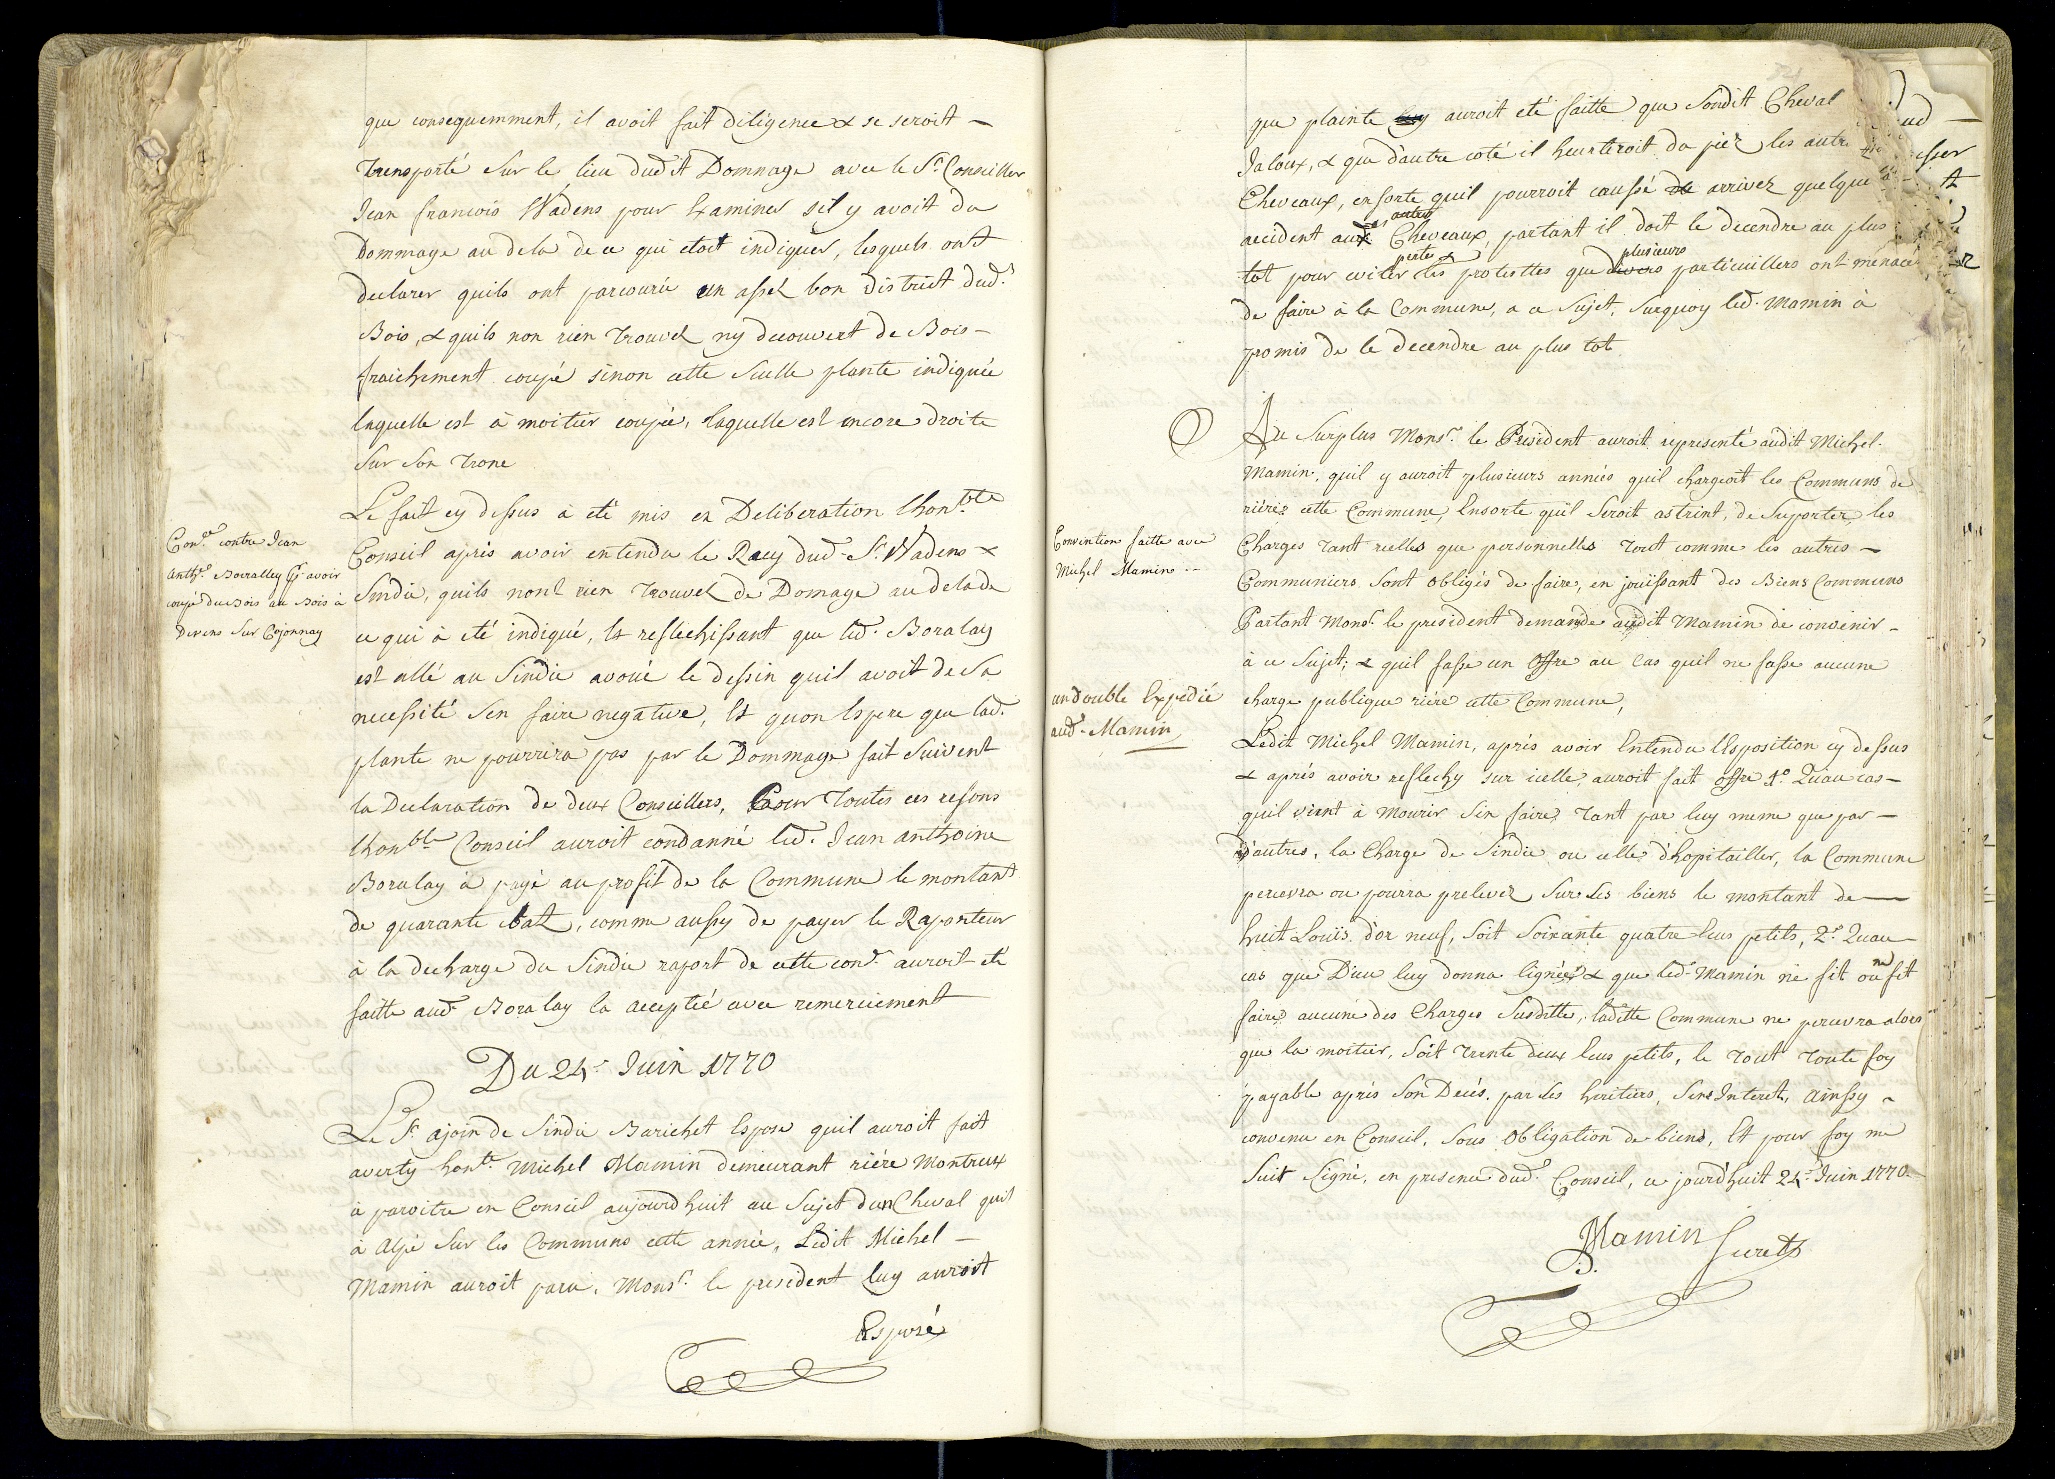 que consequemment, il avoit fait diligence & se seroit –
transporté sur le lieu dudit Dommage avec le Sr. Conseiller
Jean francois Wadens pour Examiner sil y avoit du
Dommage au dela de ce qui etoit indiquer, lesquels ont
declarer quils ont parcouru un assez bon District dud.t
Bois, & quils non rien trouvez ny decouvert de Bois –
fraichement coupé sinon cette seulle plante indiquée
laquelle est à moitier coupée, laquelle est encore droite
sur son trone
Le fait cy dessus à eté mis en Deliberation lhon.ble
Con.on contre Jean
Conseil apris avoir entendu le Racy dud. Sr. Wadens &
anth.e Boralley pr. avoir
Sindic, quils nont rien trouvez de Domage au dela de
coupé du Bois au Bois à
ce qui à eté indiqué, Et reflechissant que led. Boralay
Devens sur Cojonnay
est allé au Sindic avoué le dessin quil avoit de sa
necessité sen faire negative, Et quon Espere que lad.
plante ne pourrira pas par le Dommage fait suivent
la Declaration de deux Conseillers, Pour toutes ces resons
lhon.ble Conseil auroit condanné led. Jean anthoine
Boralay à payé au profit de la Commune le montant
de quarante batz, comme aussy de payer le Raporteur
à la decharge du Sindic raport de cette con.on auroit eté
faitte aud. Boralay la acceptée avec remerciement
Du 24e. Juin 1770
Le Sr. ajoin de Sindic Barichet Expose quil auroit fait
averty hon.te Michel Mamin demeurant riére Montreux
à paroitre en Conseil aujourdhuit au sujet dun Cheval quil
à Alpé sur les Communs cette année, Ledit Michel –
Mamin auroit paru, Mons.r le president luy auroit
Exposé
que plainte auroit eté faitte que sondit Cheval
Jaloux, & que dautre coté il heurteroit du piez les autre
Cheveaux, ensorte quil pourroit caussé de arrivez quelque
autres
accident aux Cheveaux, partant il doit le decendre au plus
perte & plusieurs
tot pour eviter les protesttes que divers particuillers ont menacé
de faire à la Commune, a ce sujet, surquoy led. Mamin à
promis de le decendre au plus tot
Au surplus Mons.r le President auroit representé audit Michel
Mamin, quil y auroit plusieurs années quil chargeoit les Communs de
riére cette Commune, Ensorte quil seroit astrint, de suporter les
Convention faitte avec
Charges tant reelles que personnelles tout comme les autres –
Michel Mamin
Communiers sont obligés de faire, en joüissant des Biens Communs
Partant Mons.r le president demande audit Mamin de convenir –
à ce sujet; & quil fasse un offre au cas quil ne fasse aucune
un double Expedié
charge publique riére cette Commune,
aud. Mamin
Ledit Michel Mamin, aprés avoir Entendu lExposition cy dessus
& aprés avoir reflechy sur icelle, auroit fait offre 1o. Quau cas –
quil vient à mourir sen faire tant par luy meme que par –
d'autres, la Charge de Sindic ou celle d'hopitailler, la Commune
percevra ou pourra prelevez sur ses biens le montant de
huit Louis d'or neuf, soit soixante quatre Ecus petits, 2o. Quau –
cas que Dieu luy donna lignée & que led. Mamin ne fit ou ne fit
faire aucune des Charges susditte, laditte Commune ne percevra alors
que la moitier, soit trente deux Ecus petits, le tout toute foy
payable aprés son Decés, par ses heritiers, sens Interet, ainssy
convenu en Conseil, sous obligation de biens, Et pour foy me
suis signé, en presence dud. Conseil, ce jourd'huit 24e. Juin 1770
Mamin